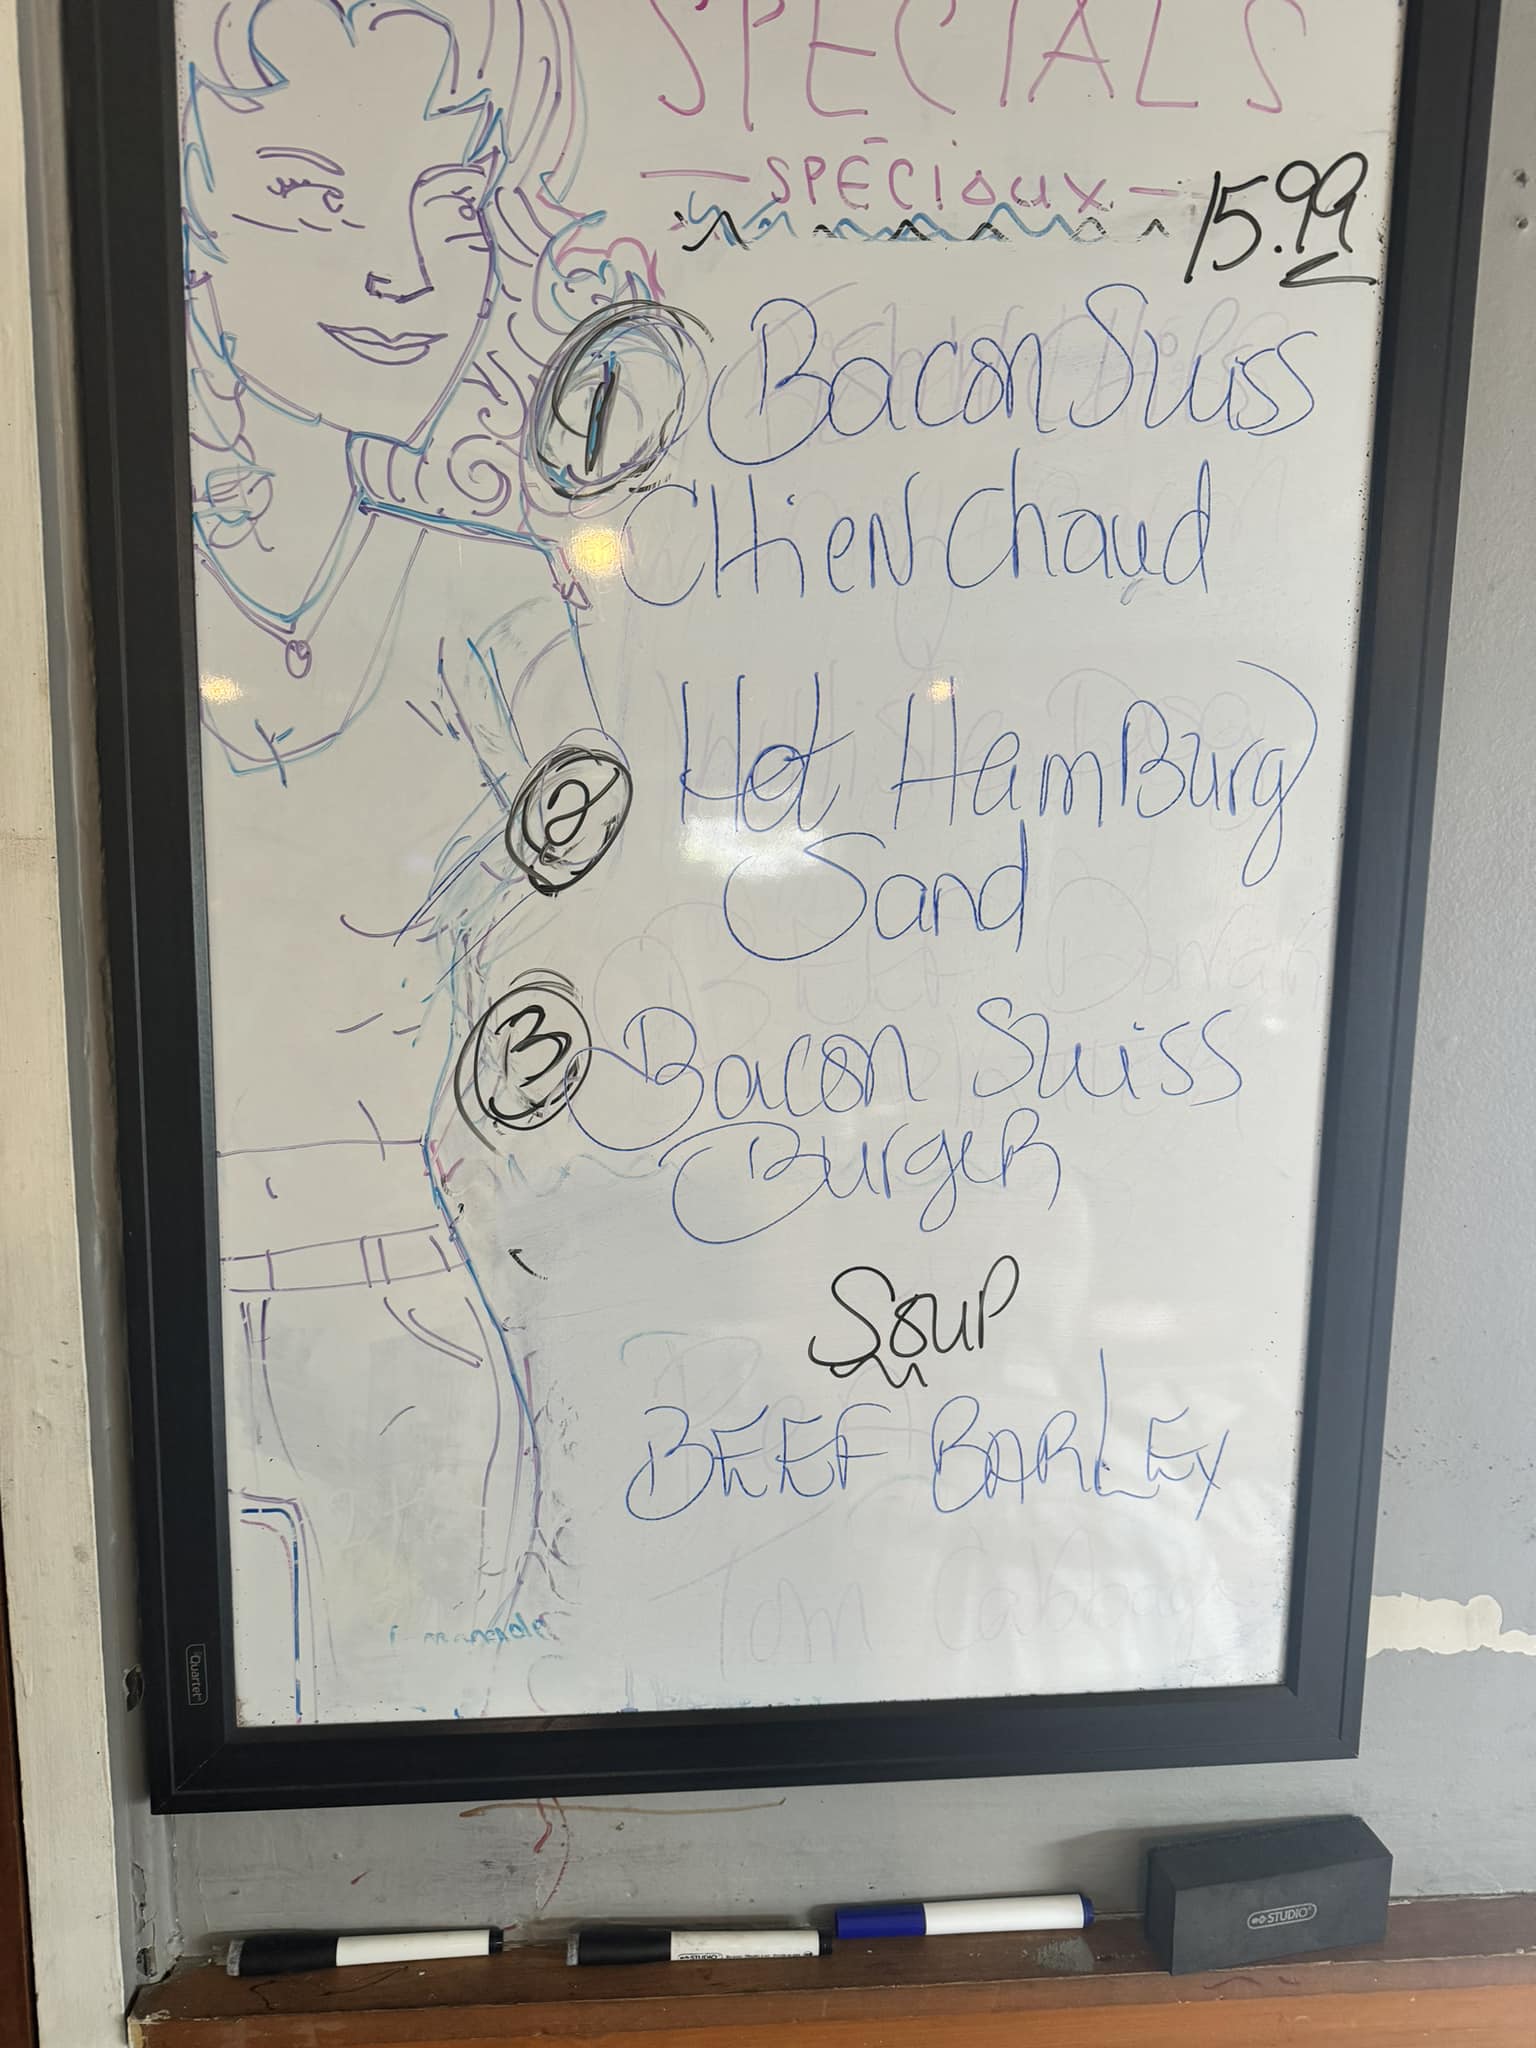 SPECIALS
- SPÉCiaux -
15.99
1 Bacon Suiss
CHieN Chaud
2 Hot HamBurg
Sand
3 Bacon Suiss
BurgeR
Soup
BEEF BARLEY
Tom Cabbage
Quartet
STUDIO
STUDIO